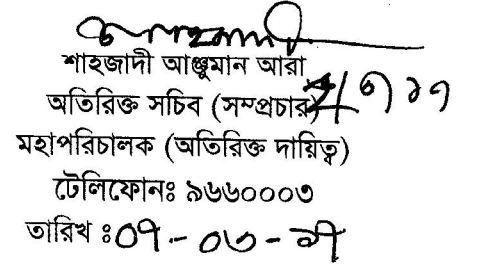 শাহজাদী আঞ্জুমান আরা
অতিরিক্ত সচিব (সম্প্রচার)
মহাপরিচালক (অতিরিক্ত দায়িত্ব)
টেলিফোনঃ ৯৬৬০০০৩
তারিখ ঃ০৭-০৩-